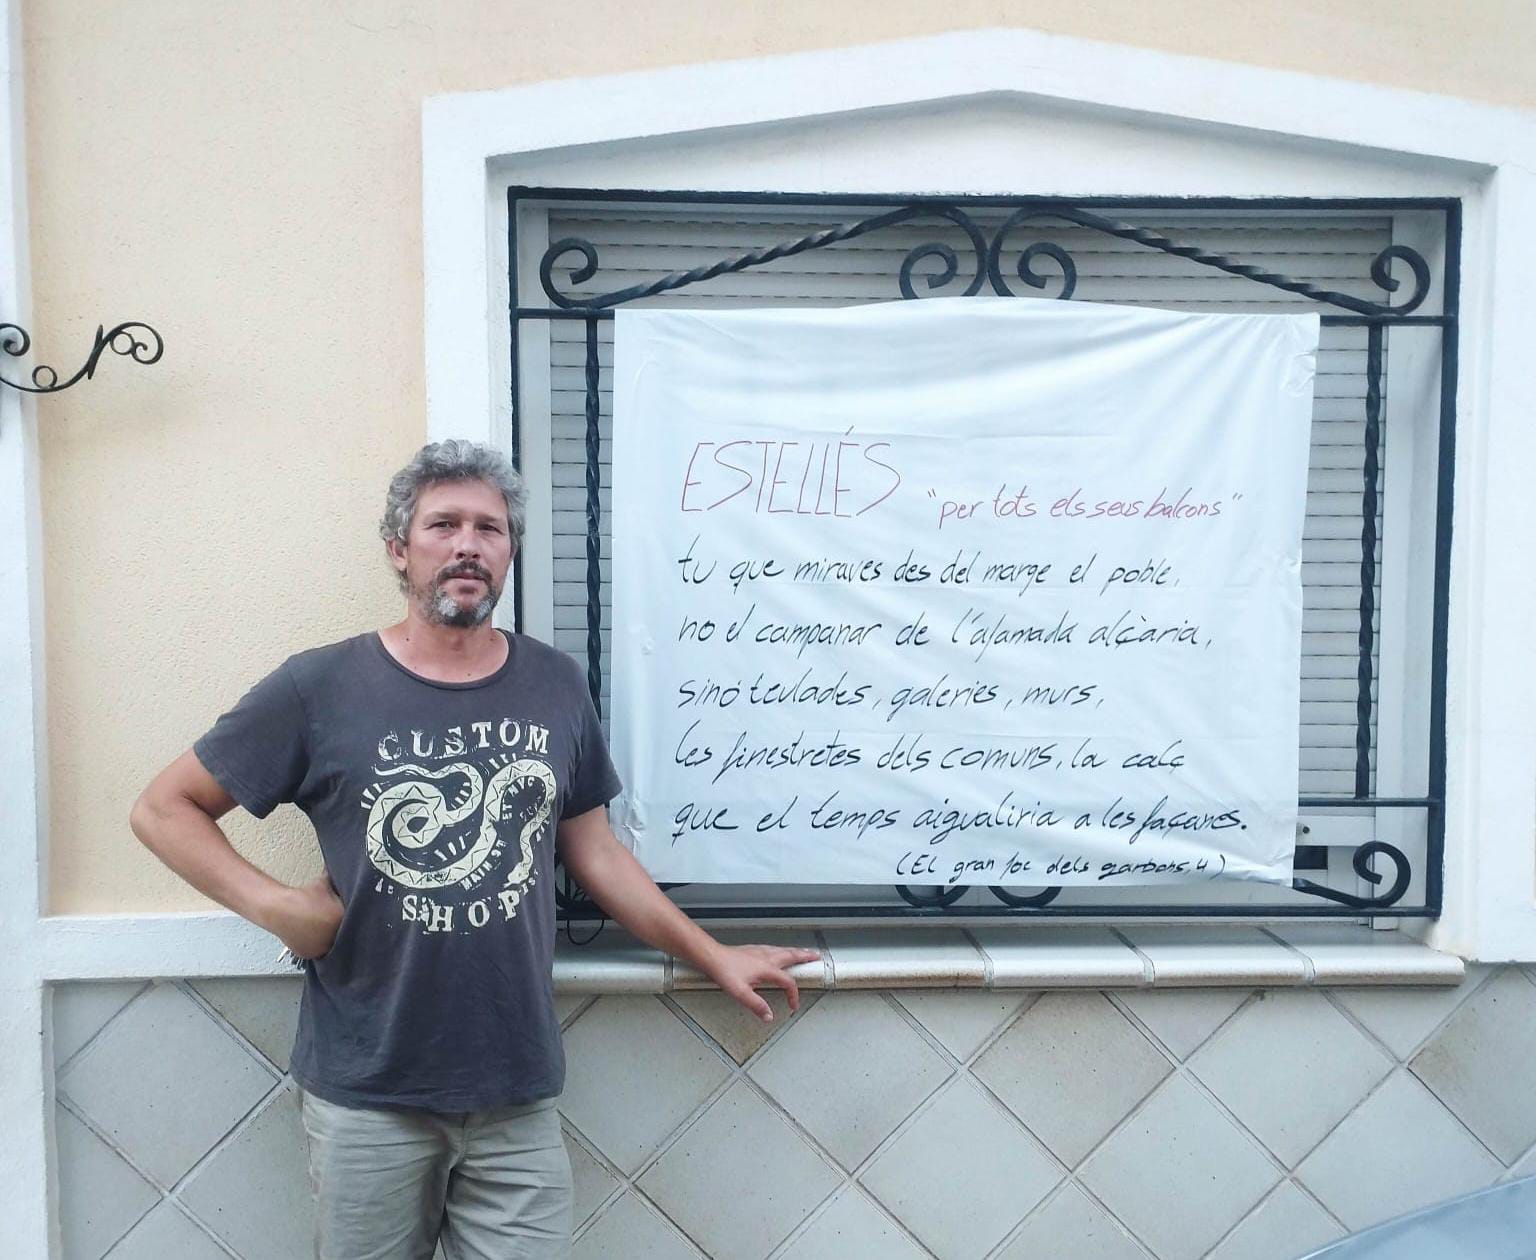 ESTELLÉS "per tots els seus balcons"
tu que miraves des del marge el poble,
no el campanar de l'afamada alçària,
sinó teulades, galeries, murs,
les finestretes dels comuns, la calç
que el temps aigualiria a les façanes.
(El gran foc dels garbons, 4)
CUSTOM
MAIN ST
SHOP